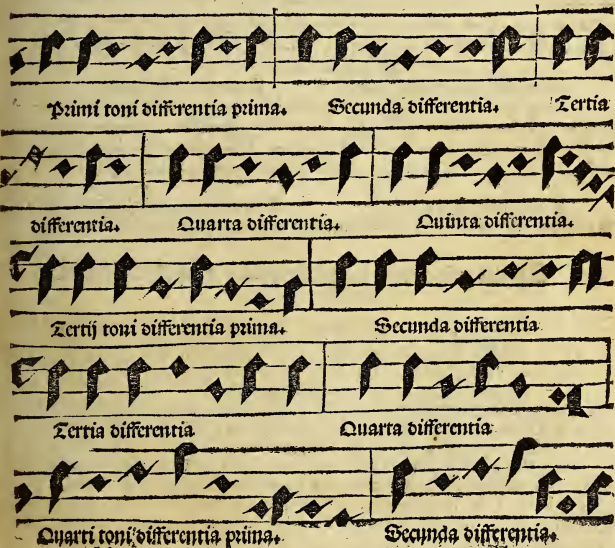 Primi toni differentia prima. Secunda differentia. Tertia
differentia. Quarta differentia. Quinta differentia.
Tertij toni differentia prima. Secunda differentia
Tertia differentia Quarta differentia
Quarti toni differentia prima. Secunda differentia.